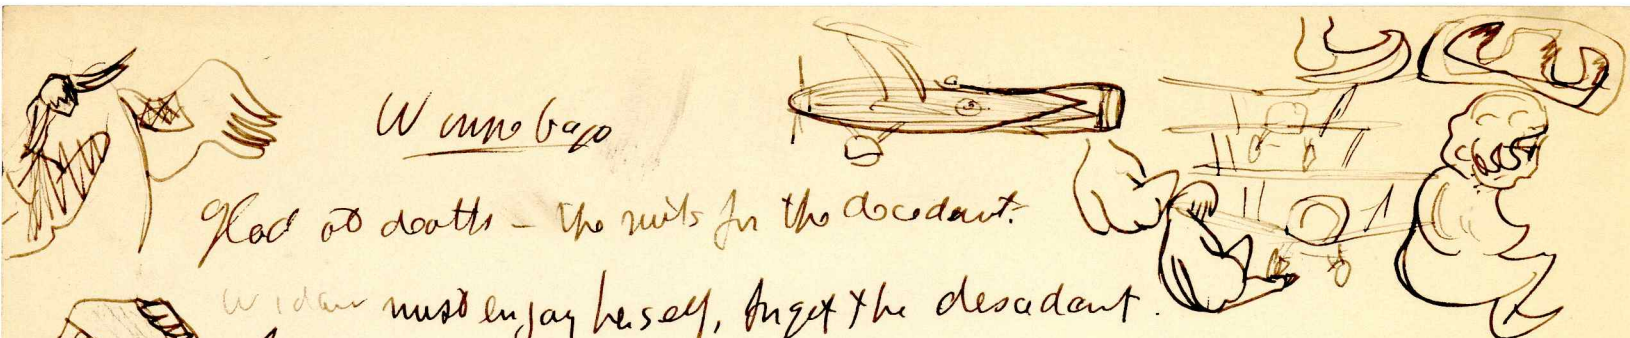 Winnebago
Glad at death – the for the decedent.
Widow must enjoy herself, forget the decedent.